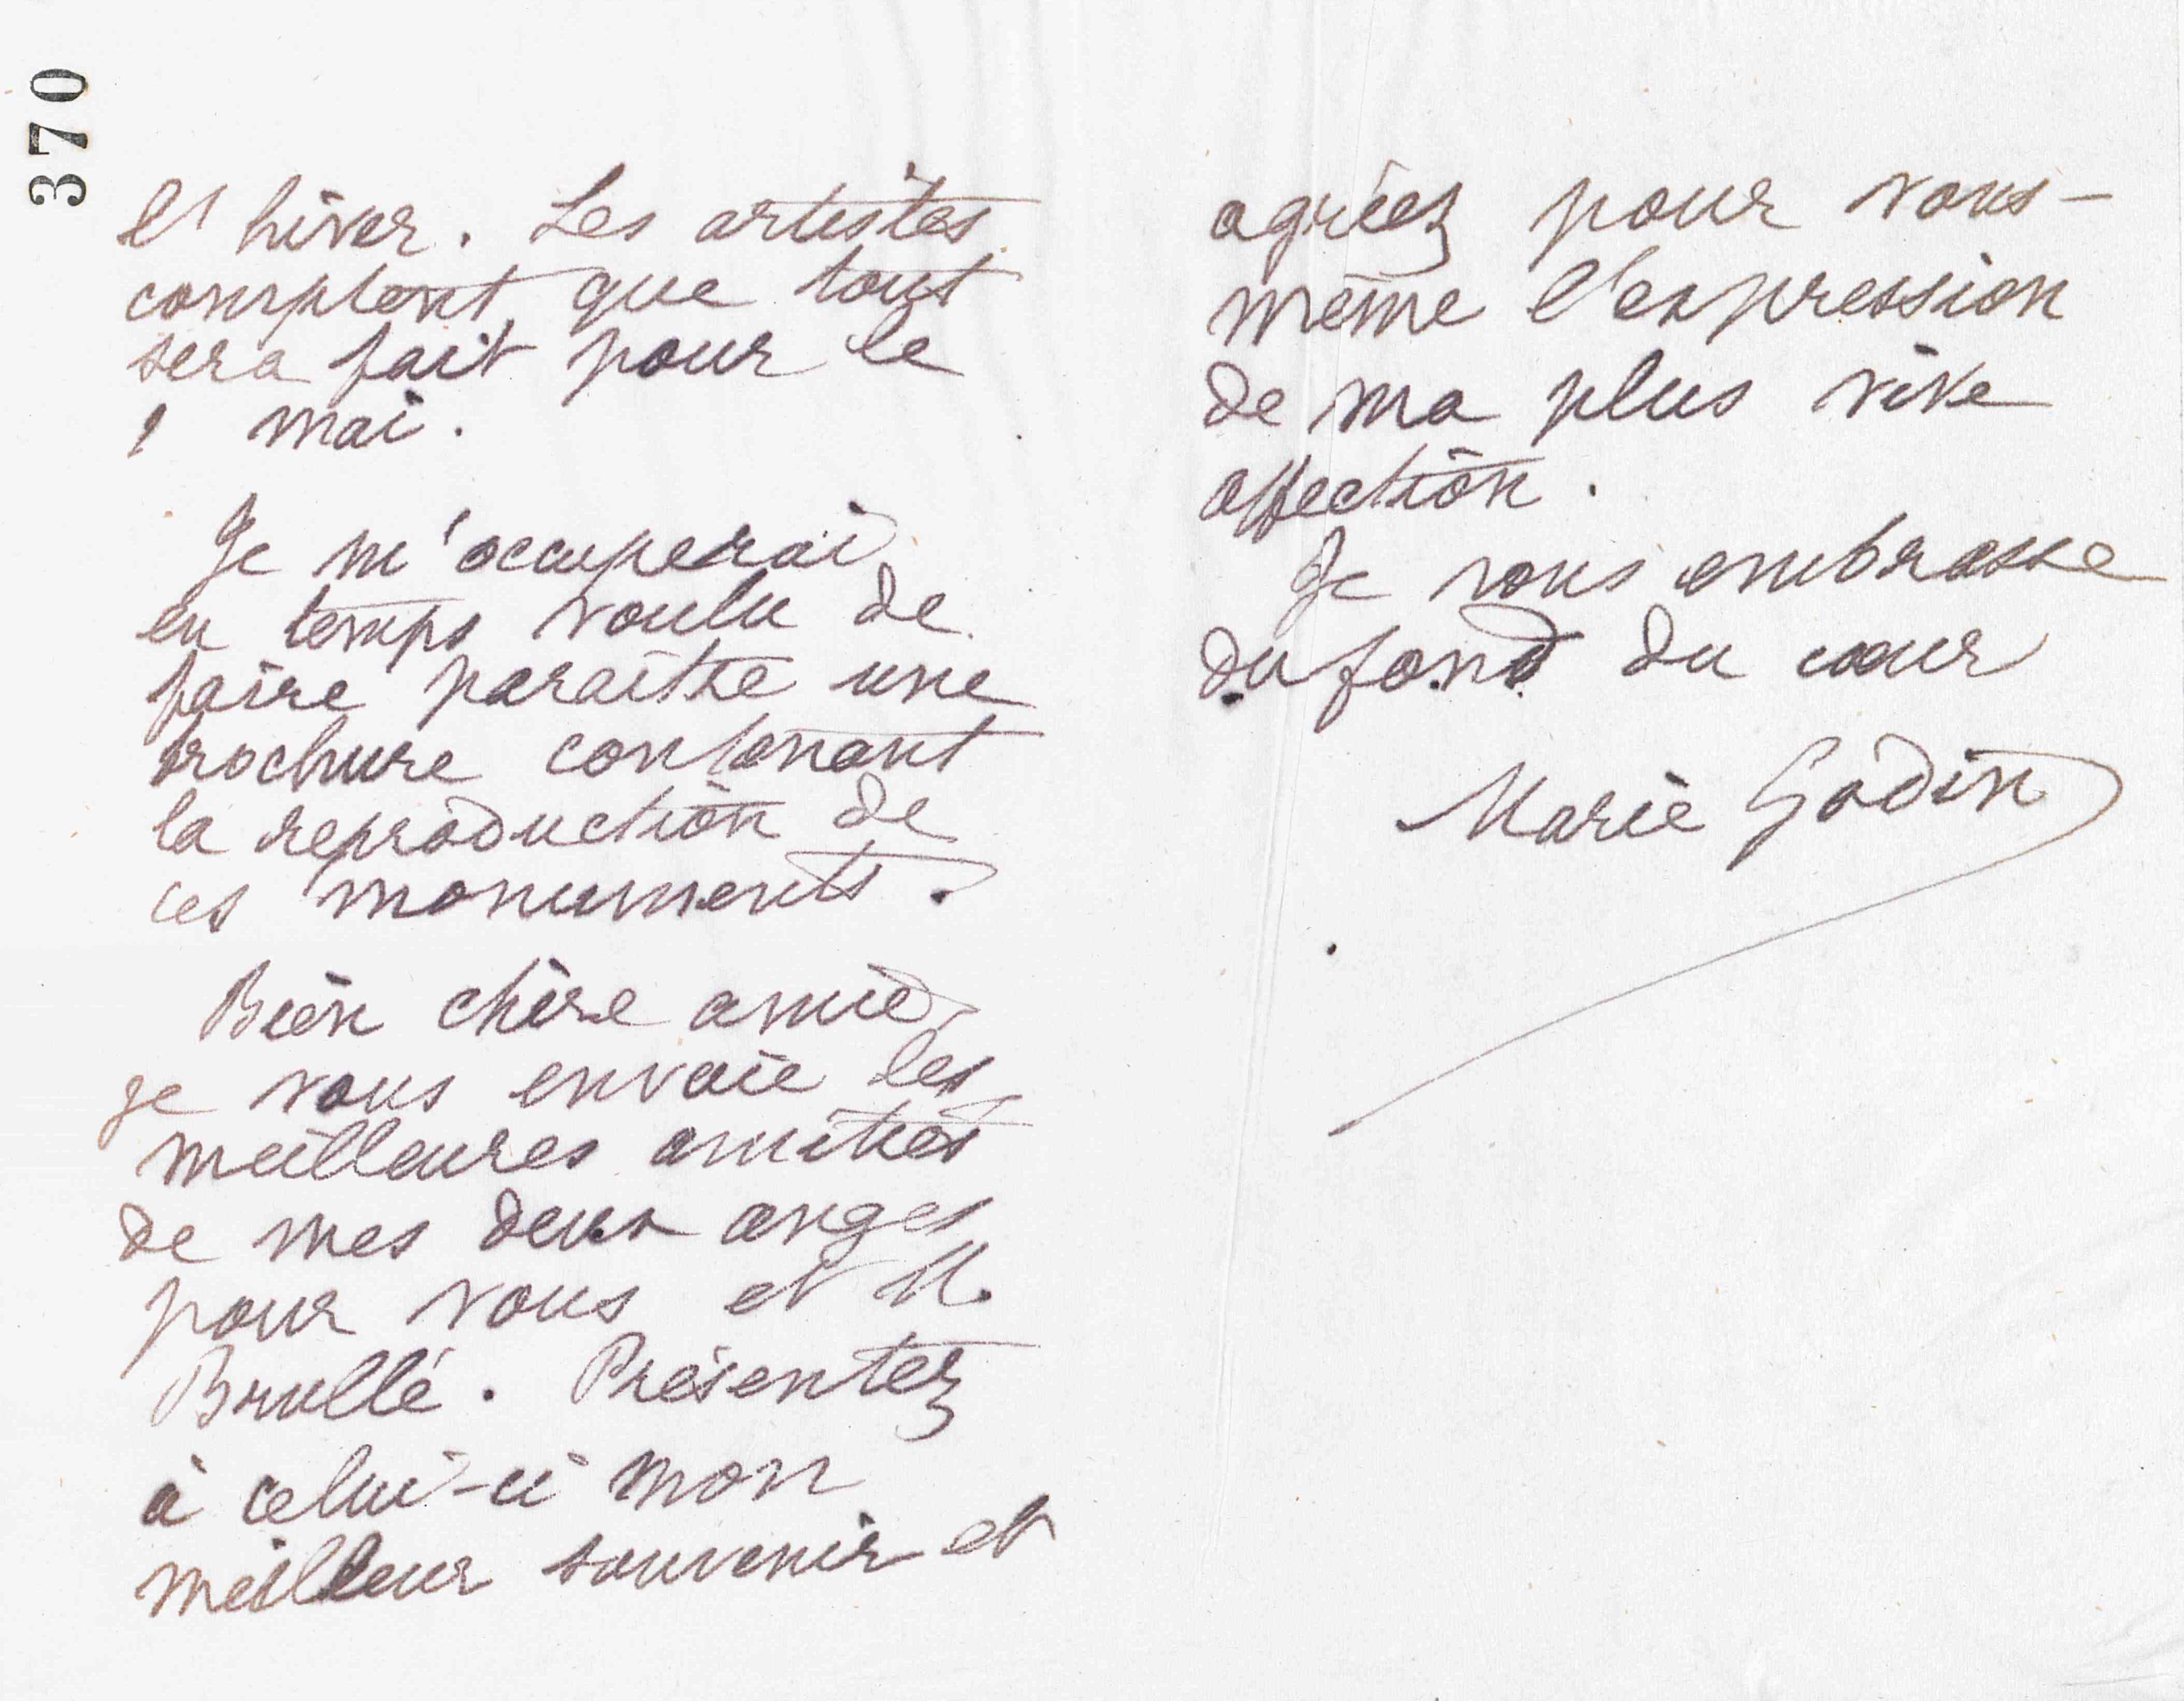 370
l'hiver. Les artistes
comptent que tout
sera fait pour le
1 mai.
Je m'occuperai
en temps voulu de
faire paraître une
brochure contenant
la reproduction de
ces monuments.
Bien chère amie,
je vous envoie les
meilleures amitiés
de mes deux anges
pour vous et M.
Brullé. Présentez
à celui-ci mon
meilleur souvenir et
agréez pour vous-
même l'expression
de ma plus vive
affection.
Je vous embrasse
du fond du cœur
Marie Godin